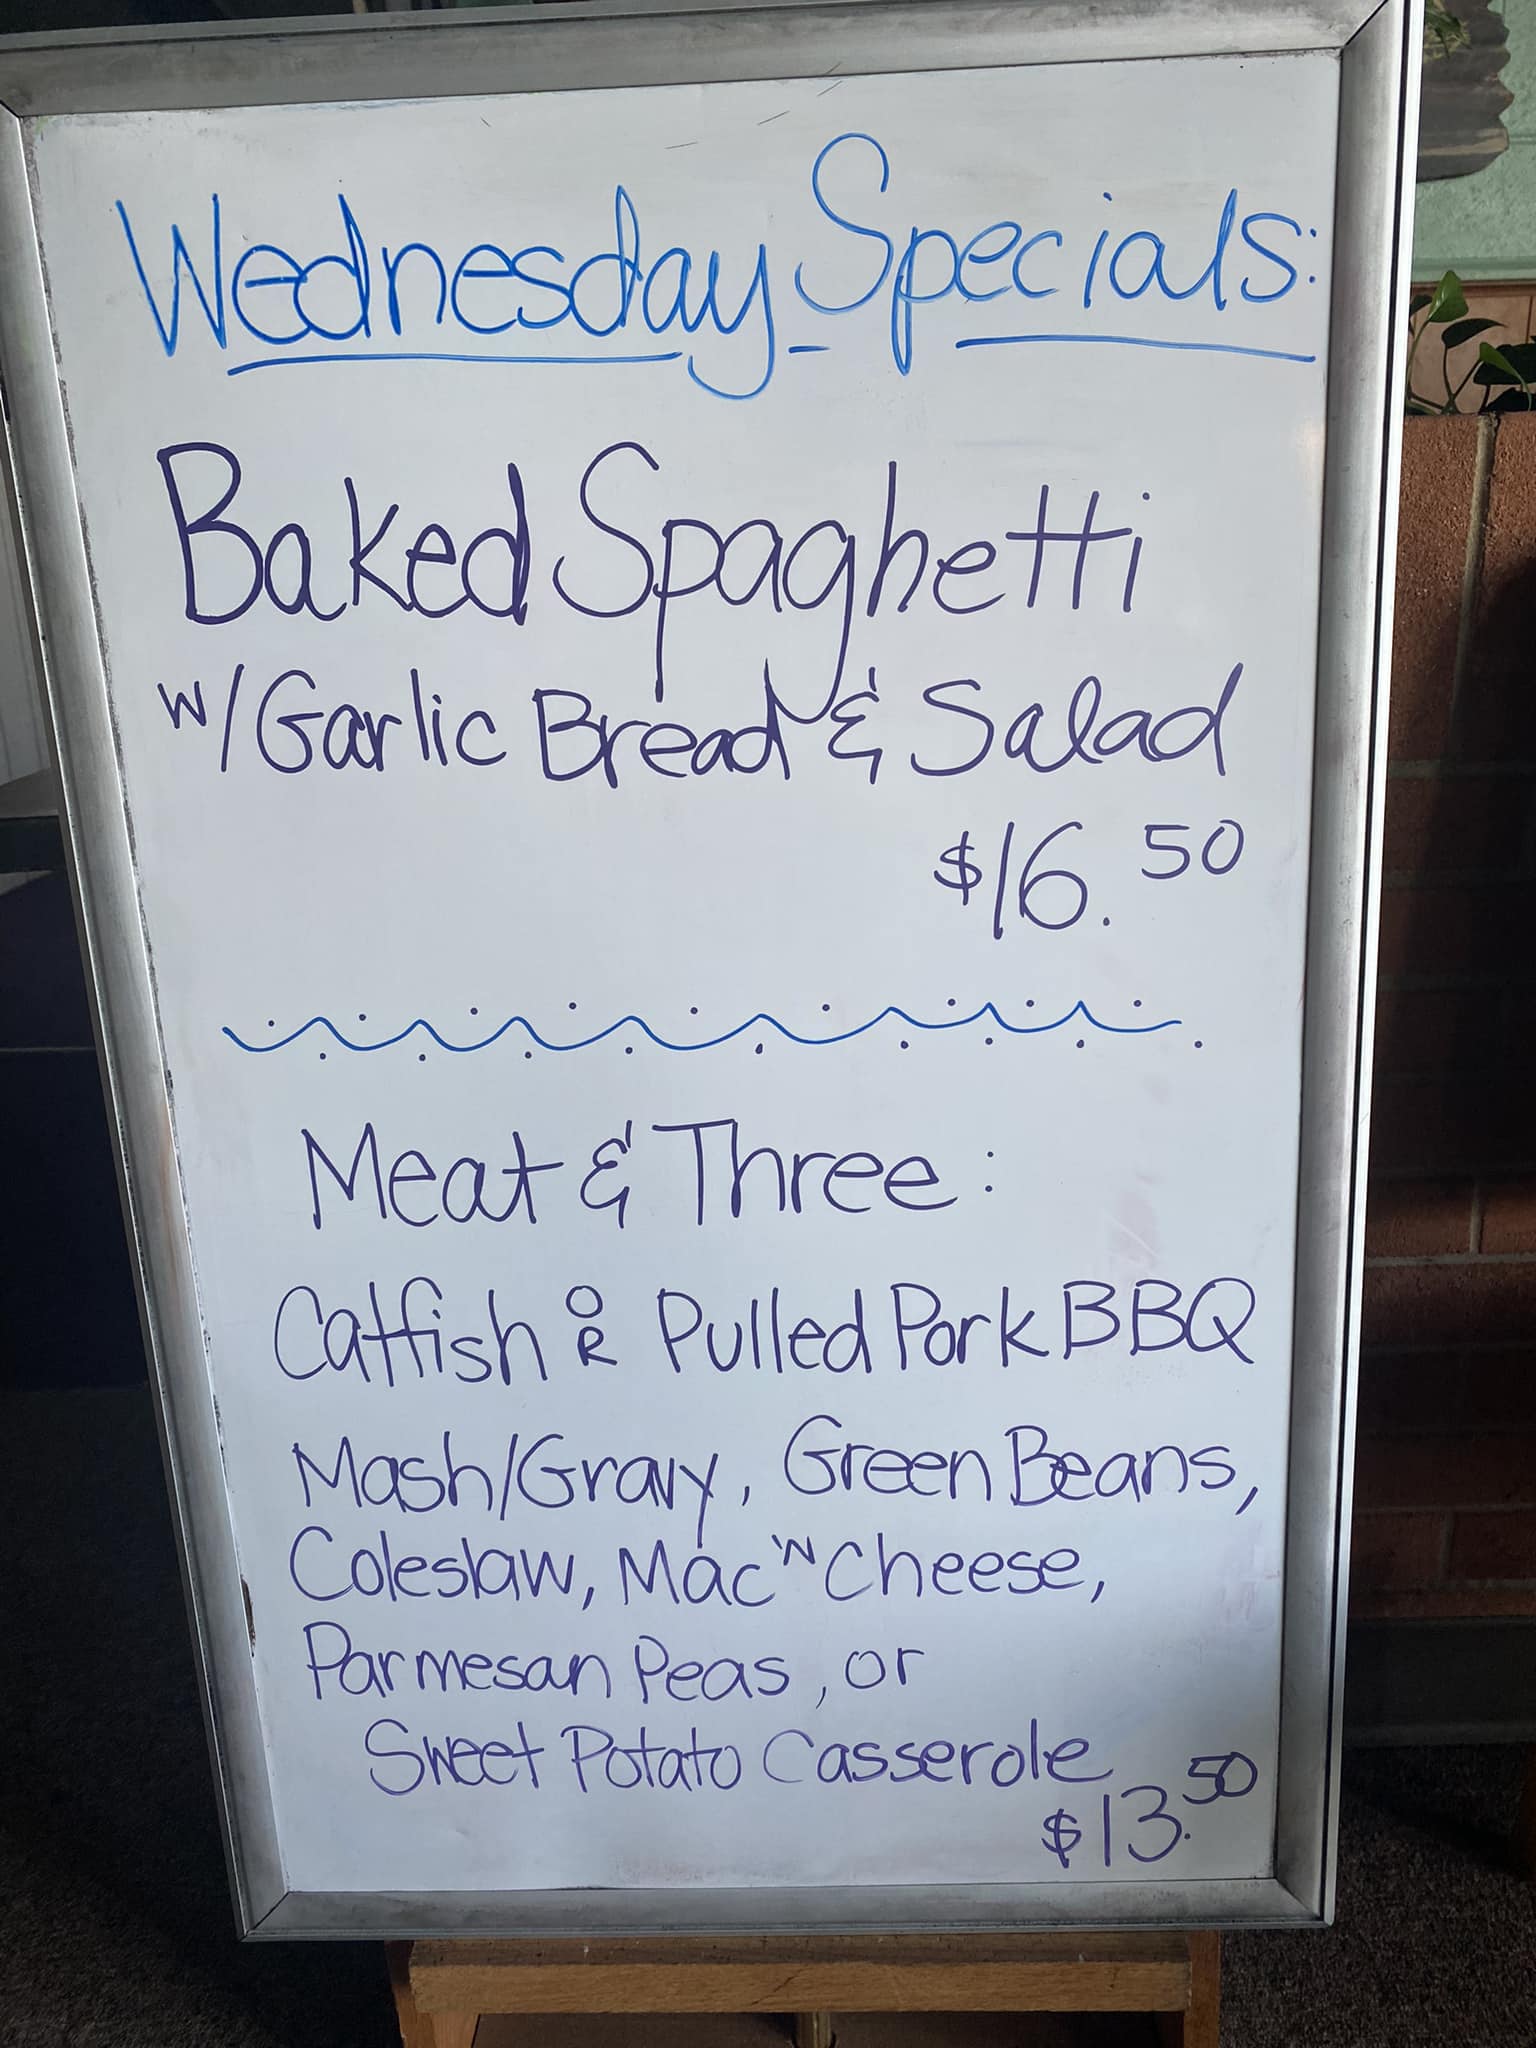 Wednesday Specials:
Baked Spaghetti
w/Garlic Bread & Salad
$16.50
Meat & Three:
Catfish OR Pulled Pork BBQ
Mash/Gravy, Green Beans,
Coleslaw, Mac 'N Cheese,
Parmesan Peas, or
Sweet Potato Casserole
$13.50